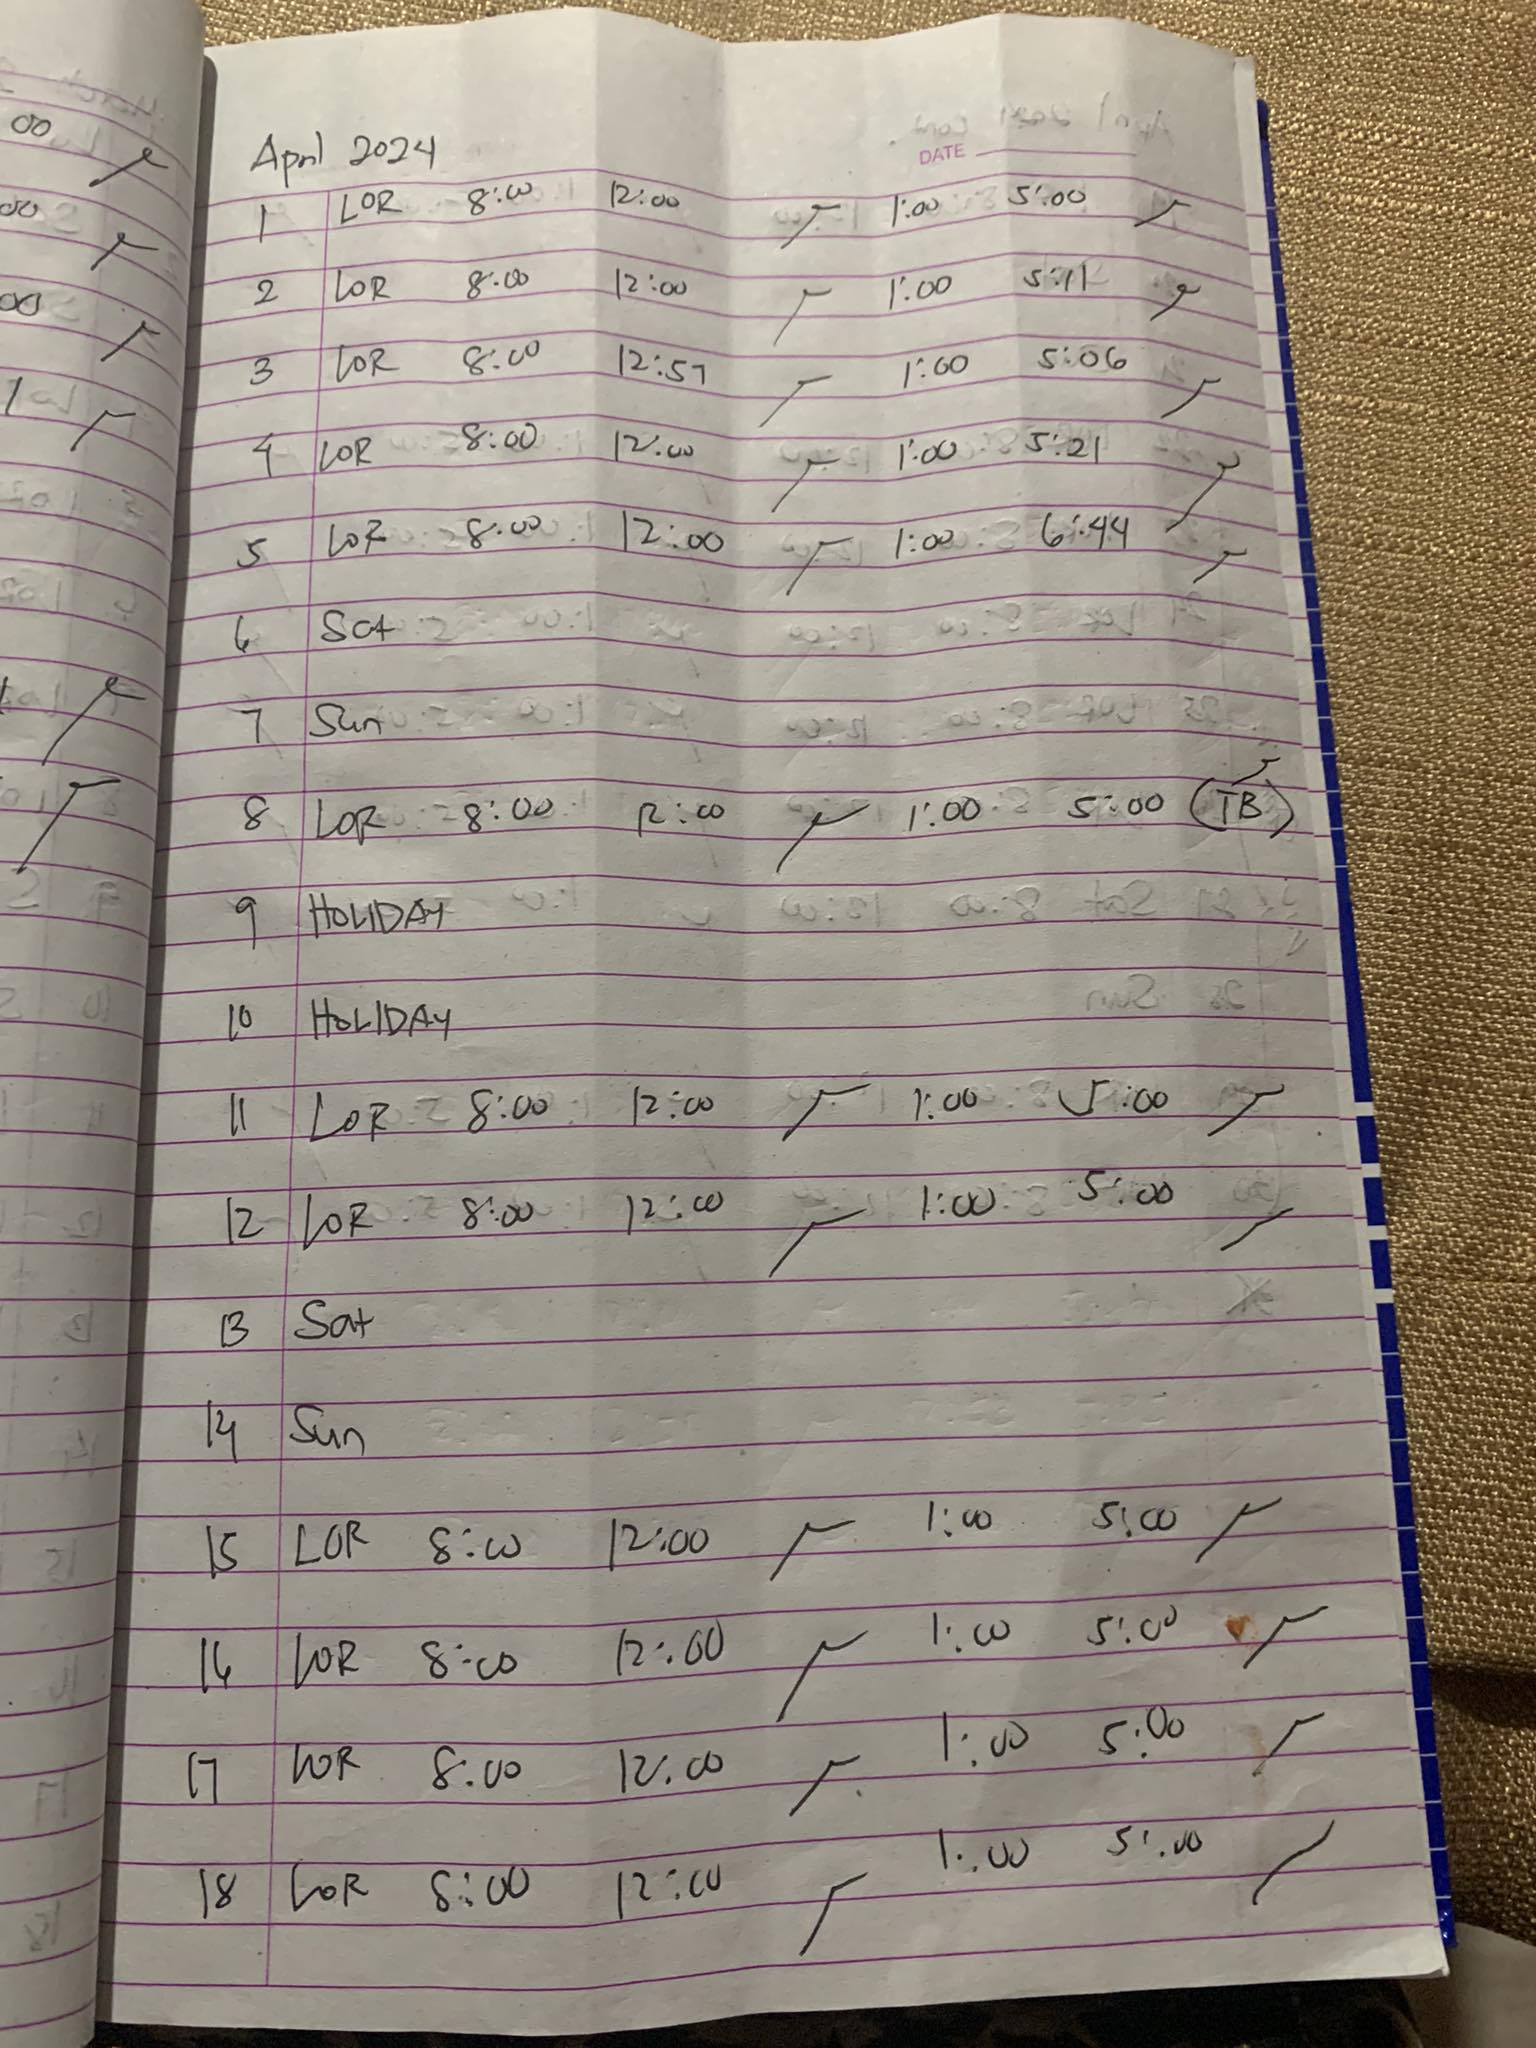 April 2024
DATE
1 LOR 8:00 12:00 1:00 5:00
2 LOR 8:00 12:00 1:00 5:11
3 LOR 8:00 12:57 1:00 5:06
4 LOR 8:00 12:00 1:00 5:21
5 LOR 8:00 12:00 1:00 6:44
6 Sat
7 Sun
8 LOR 8:00 12:00 1:00 5:00 (TB)
9 HOLIDAY
10 HOLIDAY
11 LOR 8:00 12:00 1:00 5:00
12 LOR 8:00 12:00 1:00 5:00
13 Sat
14 Sun
15 LOR 8:00 12:00 1:00 5:00
16 LOR 8:00 12:00 1:00 5:00
17 LOR 8:00 12:00 1:00 5:00
18 LOR 8:00 12:00 1:00 5:00